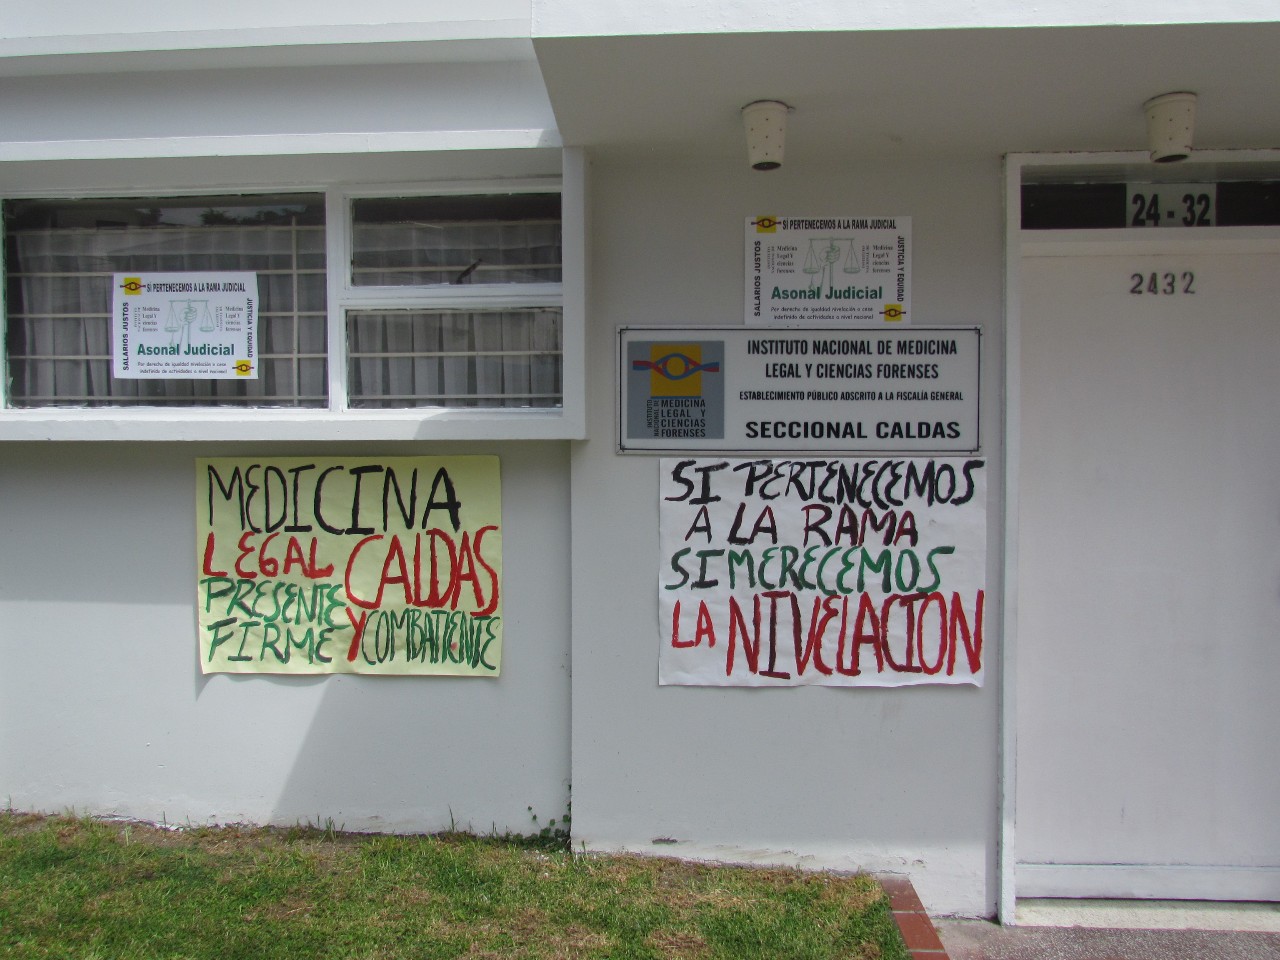 24-32
2432
SÍ PERTENECEMOS A LA RAMA JUDICIAL
SALARIOS JUSTOS
Medicina
Legal Y
ciencias
forenses
Medicina
Legal Y
ciencias
forenses
JUSTICIA Y EQUIDAD
Asonal Judicial
Por derecho de igualdad nivelación o cese
indefinido de actividades a nivel nacional
SÍ PERTENECEMOS A LA RAMA JUDICIAL
SALARIOS JUSTOS
Medicina
Legal Y
ciencias
forenses
Medicina
Legal Y
ciencias
forenses
JUSTICIA Y EQUIDAD
Asonal Judicial
Por derecho de igualdad nivelación o cese
indefinido de actividades a nivel nacional
INSTITUTO NACIONAL DE MEDICINA
LEGAL Y CIENCIAS FORENSES
ESTABLECIMIENTO PÚBLICO ADSCRITO A LA FISCALÍA GENERAL
SECCIONAL CALDAS
INSTITUTO
NACIONAL DE
MEDICINA
LEGAL Y
CIENCIAS
FORENSES
MEDICINA
LEGAL CALDAS
PRESENTE
FIRME Y COMBATIENTE
SI PERTENECEMOS
A LA RAMA
SI MERECEMOS
LA NIVELACION